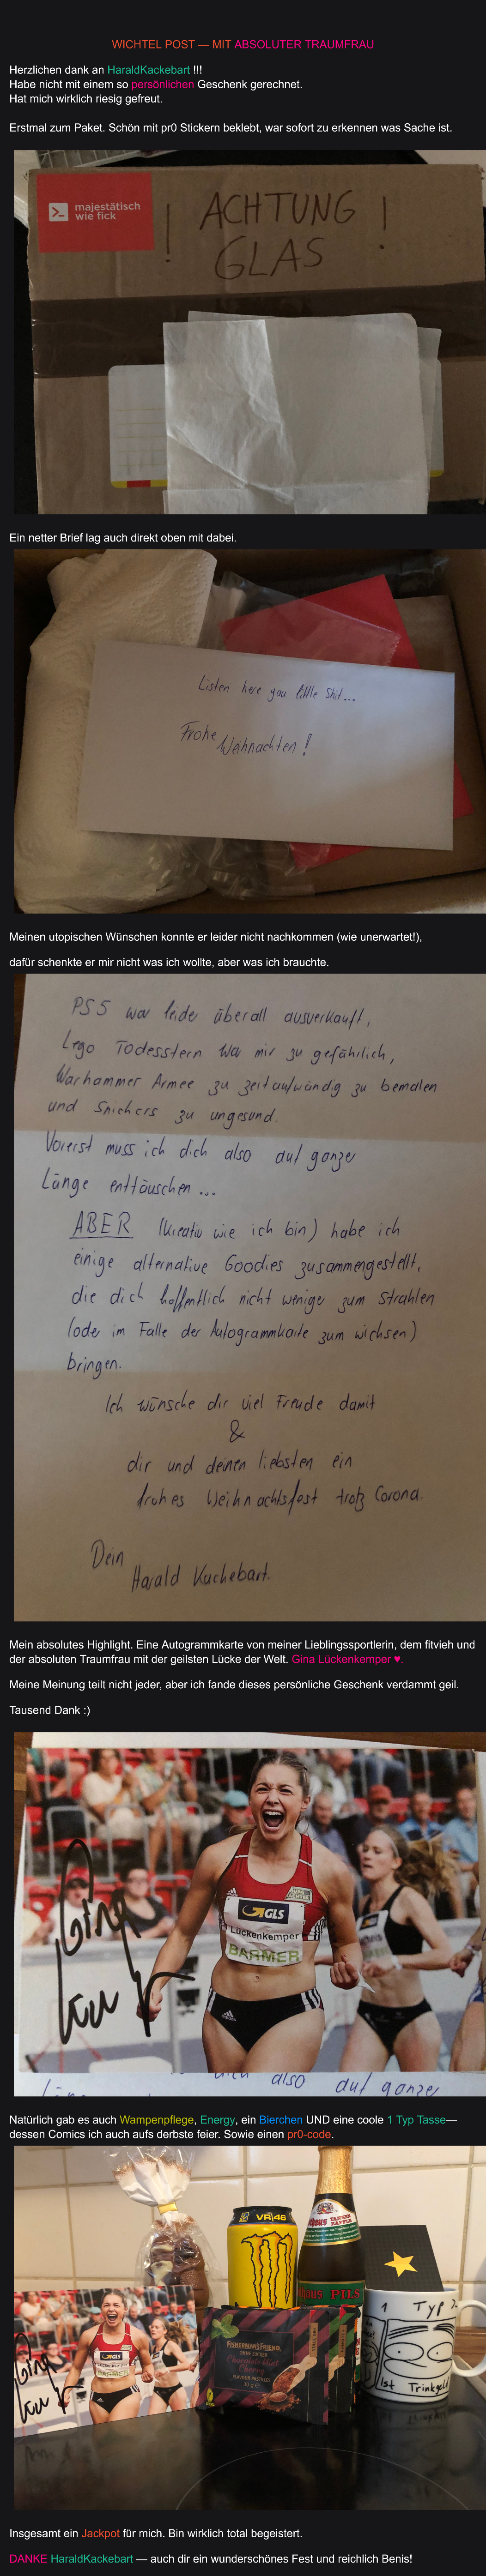 WICHTEL POST — MIT ABSOLUTER TRAUMFRAU
Herzlichen dank an HaraldKackebart !!!
Habe nicht mit einem so persönlichen Geschenk gerechnet.
Hat mich wirklich riesig gefreut.
Erstmal zum Paket. Schön mit pr0 Stickern beklebt, war sofort zu erkennen was Sache ist.
majestätisch
wie fick
! ACHTUNG !
GLAS
Ein netter Brief lag auch direkt oben mit dabei.
Listen here you little Shit...
Frohe
Weihnachten !
Meinen utopischen Wünschen konnte er leider nicht nachkommen (wie unerwartet!),
dafür schenkte er mir nicht was ich wollte, aber was ich brauchte.
PS5 war leider überall ausverkauft,
Lego Todesstern war mir zu gefährlich,
Warhammer Armee zu zeitaufwändig zu bemalen
und Snickers zu ungesund.
Vorerst muss ich dich also auf ganzer
Länge enttäuschen ...
ABER (kreativ wie ich bin) habe ich
einige alternative Goodies zusammengestellt,
die dich hoffentlich nicht weniger zum strahlen
(oder im Falle der Autogrammkarte zum wichsen)
bringen.
Ich wünsche dir viel Freude damit
&
dir und deinen liebsten ein
frohes Weihnachtsfest trotz Corona.
Dein
Harald Kuchebart.
Mein absolutes Highlight. Eine Autogrammkarte von meiner Lieblingssportlerin, dem fitvieh und
der absoluten Traumfrau mit der geilsten Lücke der Welt. Gina Lückenkemper ♥.
Meine Meinung teilt nicht jeder, aber ich fande dieses persönliche Geschenk verdammt geil.
Tausend Dank :)
Gina
GLS
Lückenkemper
BARMER
adidas
dich also auf ganzer
Länge
Natürlich gab es auch Wampenpflege, Energy, ein Bierchen UND eine coole 1 Typ Tasse—
dessen Comics ich auch aufs derbste feier. Sowie einen pr0-code.
VR|46
PILS
1 Typ
Ist Trinkgeld
FISHERMAN'S FRIEND
OHNE ZUCKER
Chocolate Mint
Cherry
Gina
GLS
Lückenkemper
BARMER
Insgesamt ein Jackpot für mich. Bin wirklich total begeistert.
DANKE HaraldKackebart — auch dir ein wunderschönes Fest und reichlich Benis!